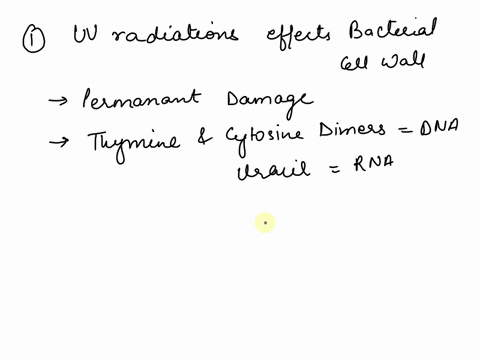 ① UV radiations effects Bacterial
Cell Wall
→ Permanant Damage
→ Thymine & Cytosine Dimers = DNA
Uracil = RNA